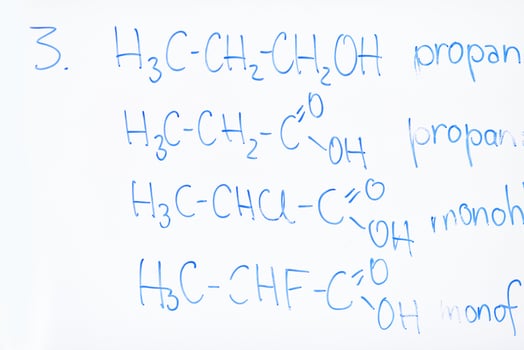 3. H₃C-CH₂-CH₂OH propan
H₃C-CH₂-C=O OH propan
H₃C-CHCl-C=O OH monoh
H₃C-CHF-C=O OH monof